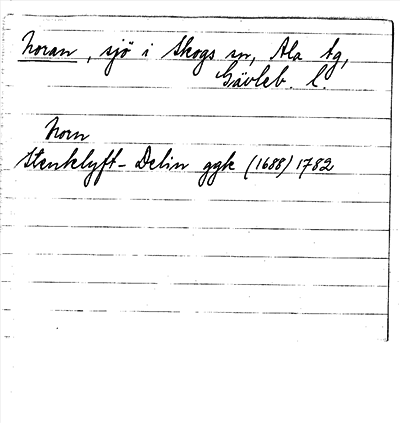 Noran, sjö i Skogs sn, Ala tg,
Gävleb. l.
Norn
Stenklyft- Delin ggk (1688) 1782